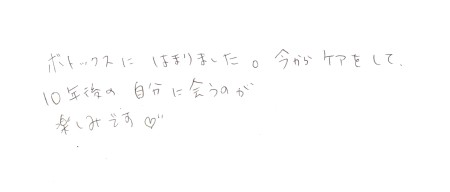 ボトックスに はまりました。今から ケアをして、
10年後の 自分に会うのが
楽しみです♡